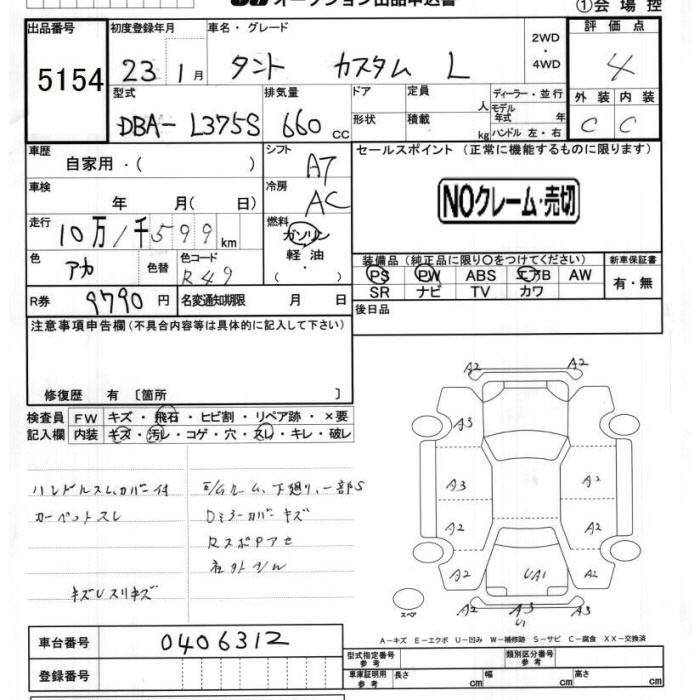 オークション出品申込書
①会場控
出品番号
5154
初度登録年月
23 1月
車名・グレード
タント カスタム L
2WD
・
4WD
評価点
4
型式
DBA-L375S
排気量
660 CC
ドア
形状
定員
人
積載
kg
ディーラー・並行
モデル
年式 年
ハンドル 左・右
外装
C
内装
C
車歴
自家用・( )
シフト
AT
セールスポイント (正常に機能するものに限ります)
NOクレーム・売切
車検
年 月( 日)
冷房
AC
走行
10万1千599km
燃料
ガソリン
軽油
( )
色
アカ
色替
色コード
R49
装備品 (純正品に限り○をつけてください)
PS PW ABS エアB AW
SR ナビ TV カワ
新車保証書
有・無
R券
9790円
名変通知期限 月 日
後日品
注意事項申告欄(不具合内容等は具体的に記入して下さい)
修復歴 有 〔箇所 〕
検査員
記入欄
FW キズ・飛石・ヒビ割・リペア跡・×要
内装 キズ・汚レ・コゲ・穴・スレ・キレ・破レ
ハンドルスレ、カバー付
カーペットスレ
キズUスリキズ
E/Gルーム、下廻り、一部S
Dミラーカバーキズ
RスポPアセ
A2 A2
A3
A3 A2
A2 A2
A2 UA1 A2
A2 A3 A2
U1
スペア
A-キズ E-エクボ U-凹み W-補修跡 S-サビ C-腐食 XX-交換済
車台番号
0406312
登録番号
型式指定番号
参考
類別区分番号
参考
車庫証明用
参考
長さ cm
幅 cm
高さ cm